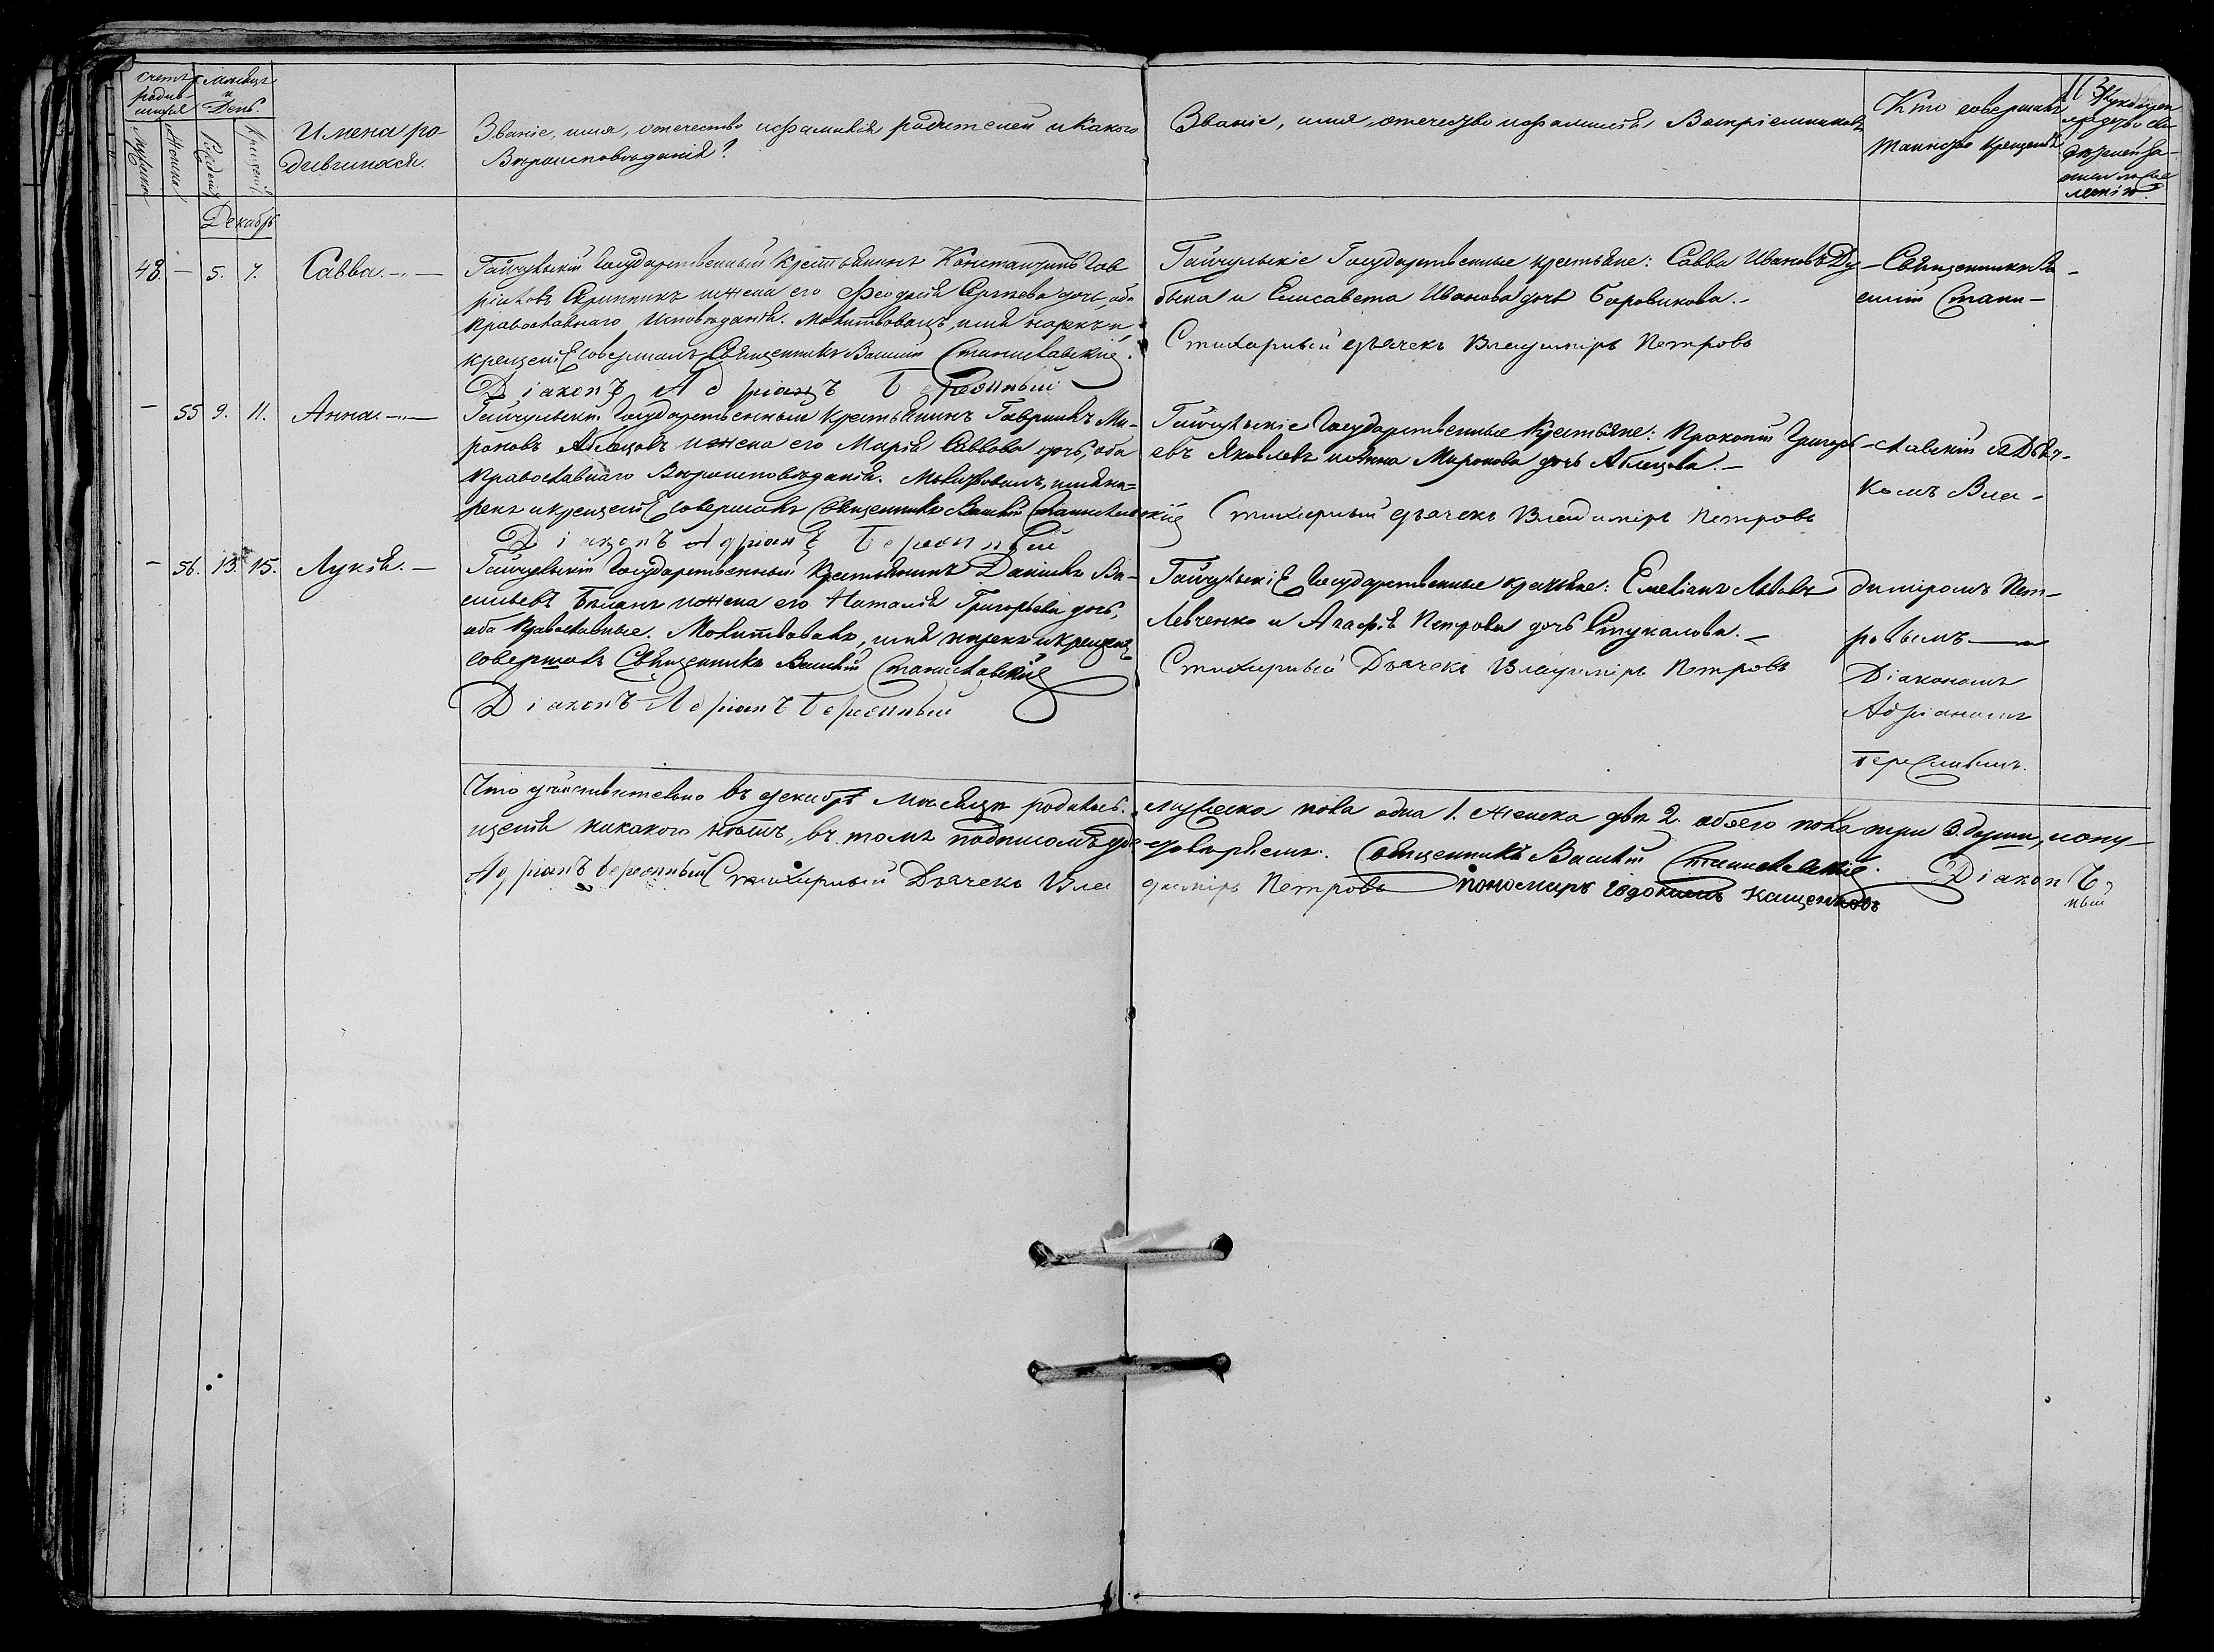 Счетъ родив-шихся
Мѣсяцъ и День.
Мужеска
Женска
Рожденія
Крещенія
Имена ро-
дившихся.
Званіе, имя, отечество и фамилія родителей и какого
Вѣроисповѣданія?
Званіе, имя, отечество и фамилія Воспріемниковъ
Кто совершалъ
таинство крещенія
Рукопри
кладство сви
дѣтелей за-
писи по же
ланію.
Декабрь
48. — 5. 7. Савва. —
Гайчульскій Государственный Крестьянинъ Константинъ Гав
ріиловъ Скрипникъ и жена его Феодосія Сергѣева дочь, оба
Православнаго Исповѣданія. Молитвовалъ, имя нарекъ и
крещеніе совершалъ Священникъ Василій Станиславскіе.
Діаконъ Адріанъ
Гайчульскіе Государственные крестьяне: Савва Ивановъ Ду
бына и Елисавета Иванова дочь Боровикова. —
Стихарный дьячекъ Владиміръ Петровъ
— Священникъ Ва
силій Стани —
— 55 9. 11. Анна. —
Гайчульскій Государственный крестьянинъ Гавріилъ Ми-
роновъ Аблецовъ и жена его Марія Саввова дочь, оба
Православнаго Вѣроисповѣданія. Молитвовалъ, имя на=
рекъ и крещеніе совершалъ Священникъ Василій Станиславскіе
Діаконъ Адріанъ
Гайчульскіе Государственные Крестьяне: Прокопій Григорь-
евъ Яковлевъ и Анна Миронова дочь Аблецова. —
Стихарный дьячекъ Владиміръ Петровъ
— славскій съ Дьяч-
комъ Вла -
— 56. 13. 15. Лукія. —
Гайчульскій Государственный Крестьянинъ Даніилъ Ва-
сильевъ Бѣланъ и жена его Наталія Григорьева дочь,
оба Православные. Молитвовалъ, имя нарекъ и крещеніе
совершалъ Священникъ Василій Станиславскіе
Діаконъ Адріанъ
Гайчульскіе Государственные крестьяне: Емеліанъ Львовъ
Левченко и Агафія Петрова дочь Стукалова. —
Стихарный Дьячекъ Владиміръ Петровъ
диміромъ Пет-
ровымъ —
Діакономъ
Адріаномъ
Что дѣйствительно въ декабрѣ мѣсяцѣ родилось. мужеска пола одна 1. женска двѣ 2. обоего пола три 3. души, и опу-
щенія никакого нѣтъ, въ томъ подписомъ удо- стовѣряемъ. Священникъ Василій Станиславскіе. Діаконъ
Адріанъ Стихарный Дьячекъ Вла диміръ Петровъ Пономарь